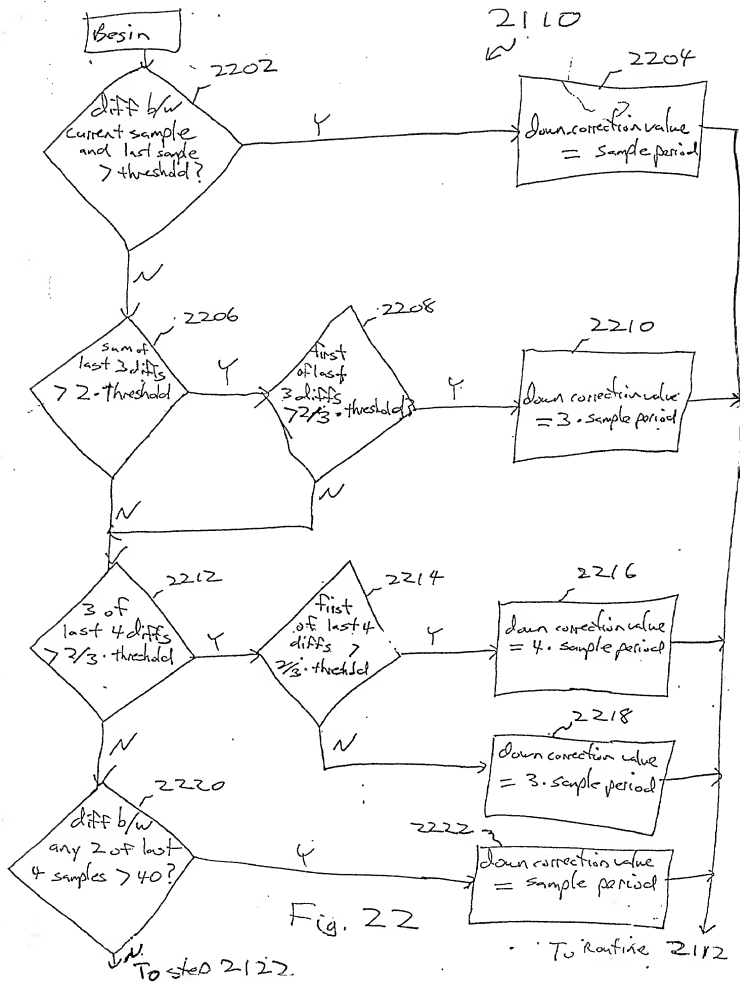 Begin
2110
2202
diff b/w
current sample
and last sample
> threshold?
Y
2204
down correction value
= sample period
N
2206
sum of
last 3 diffs
> 2 · threshold
Y
2208
first
of last
3 diffs
> 2/3 · threshold?
Y
2210
down correction value
= 3 · sample period
N
N
2212
3 of
last 4 diffs
> 2/3 · threshold
Y
2214
first
of last 4
diffs >
2/3 · threshold
Y
2216
down correction value
= 4 · sample period
N
N
2218
down correction value
= 3 · sample period
2220
diff b/w
any 2 of last
4 samples > 40?
Y
2222
down correction value
= sample period
N
To step 2122
Fig. 22
To Routine 2112